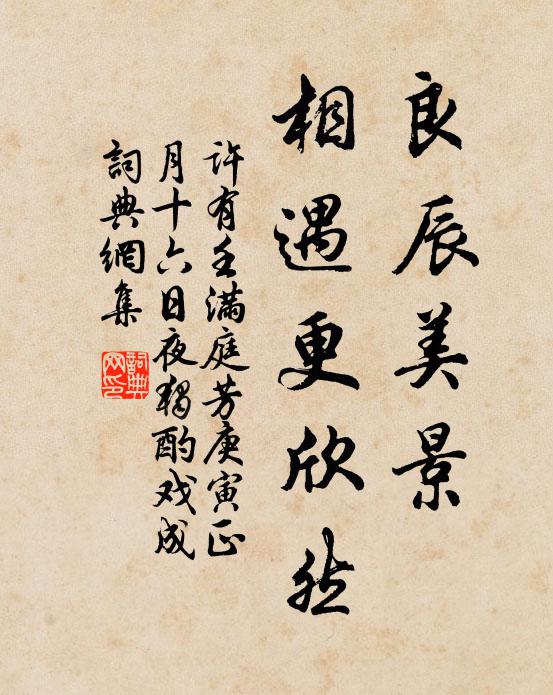 良辰美景
相遇更欣然
許有壬滿庭芳庚寅正
月十六日夜獨酌戏成
詞典網集
詞典
网印